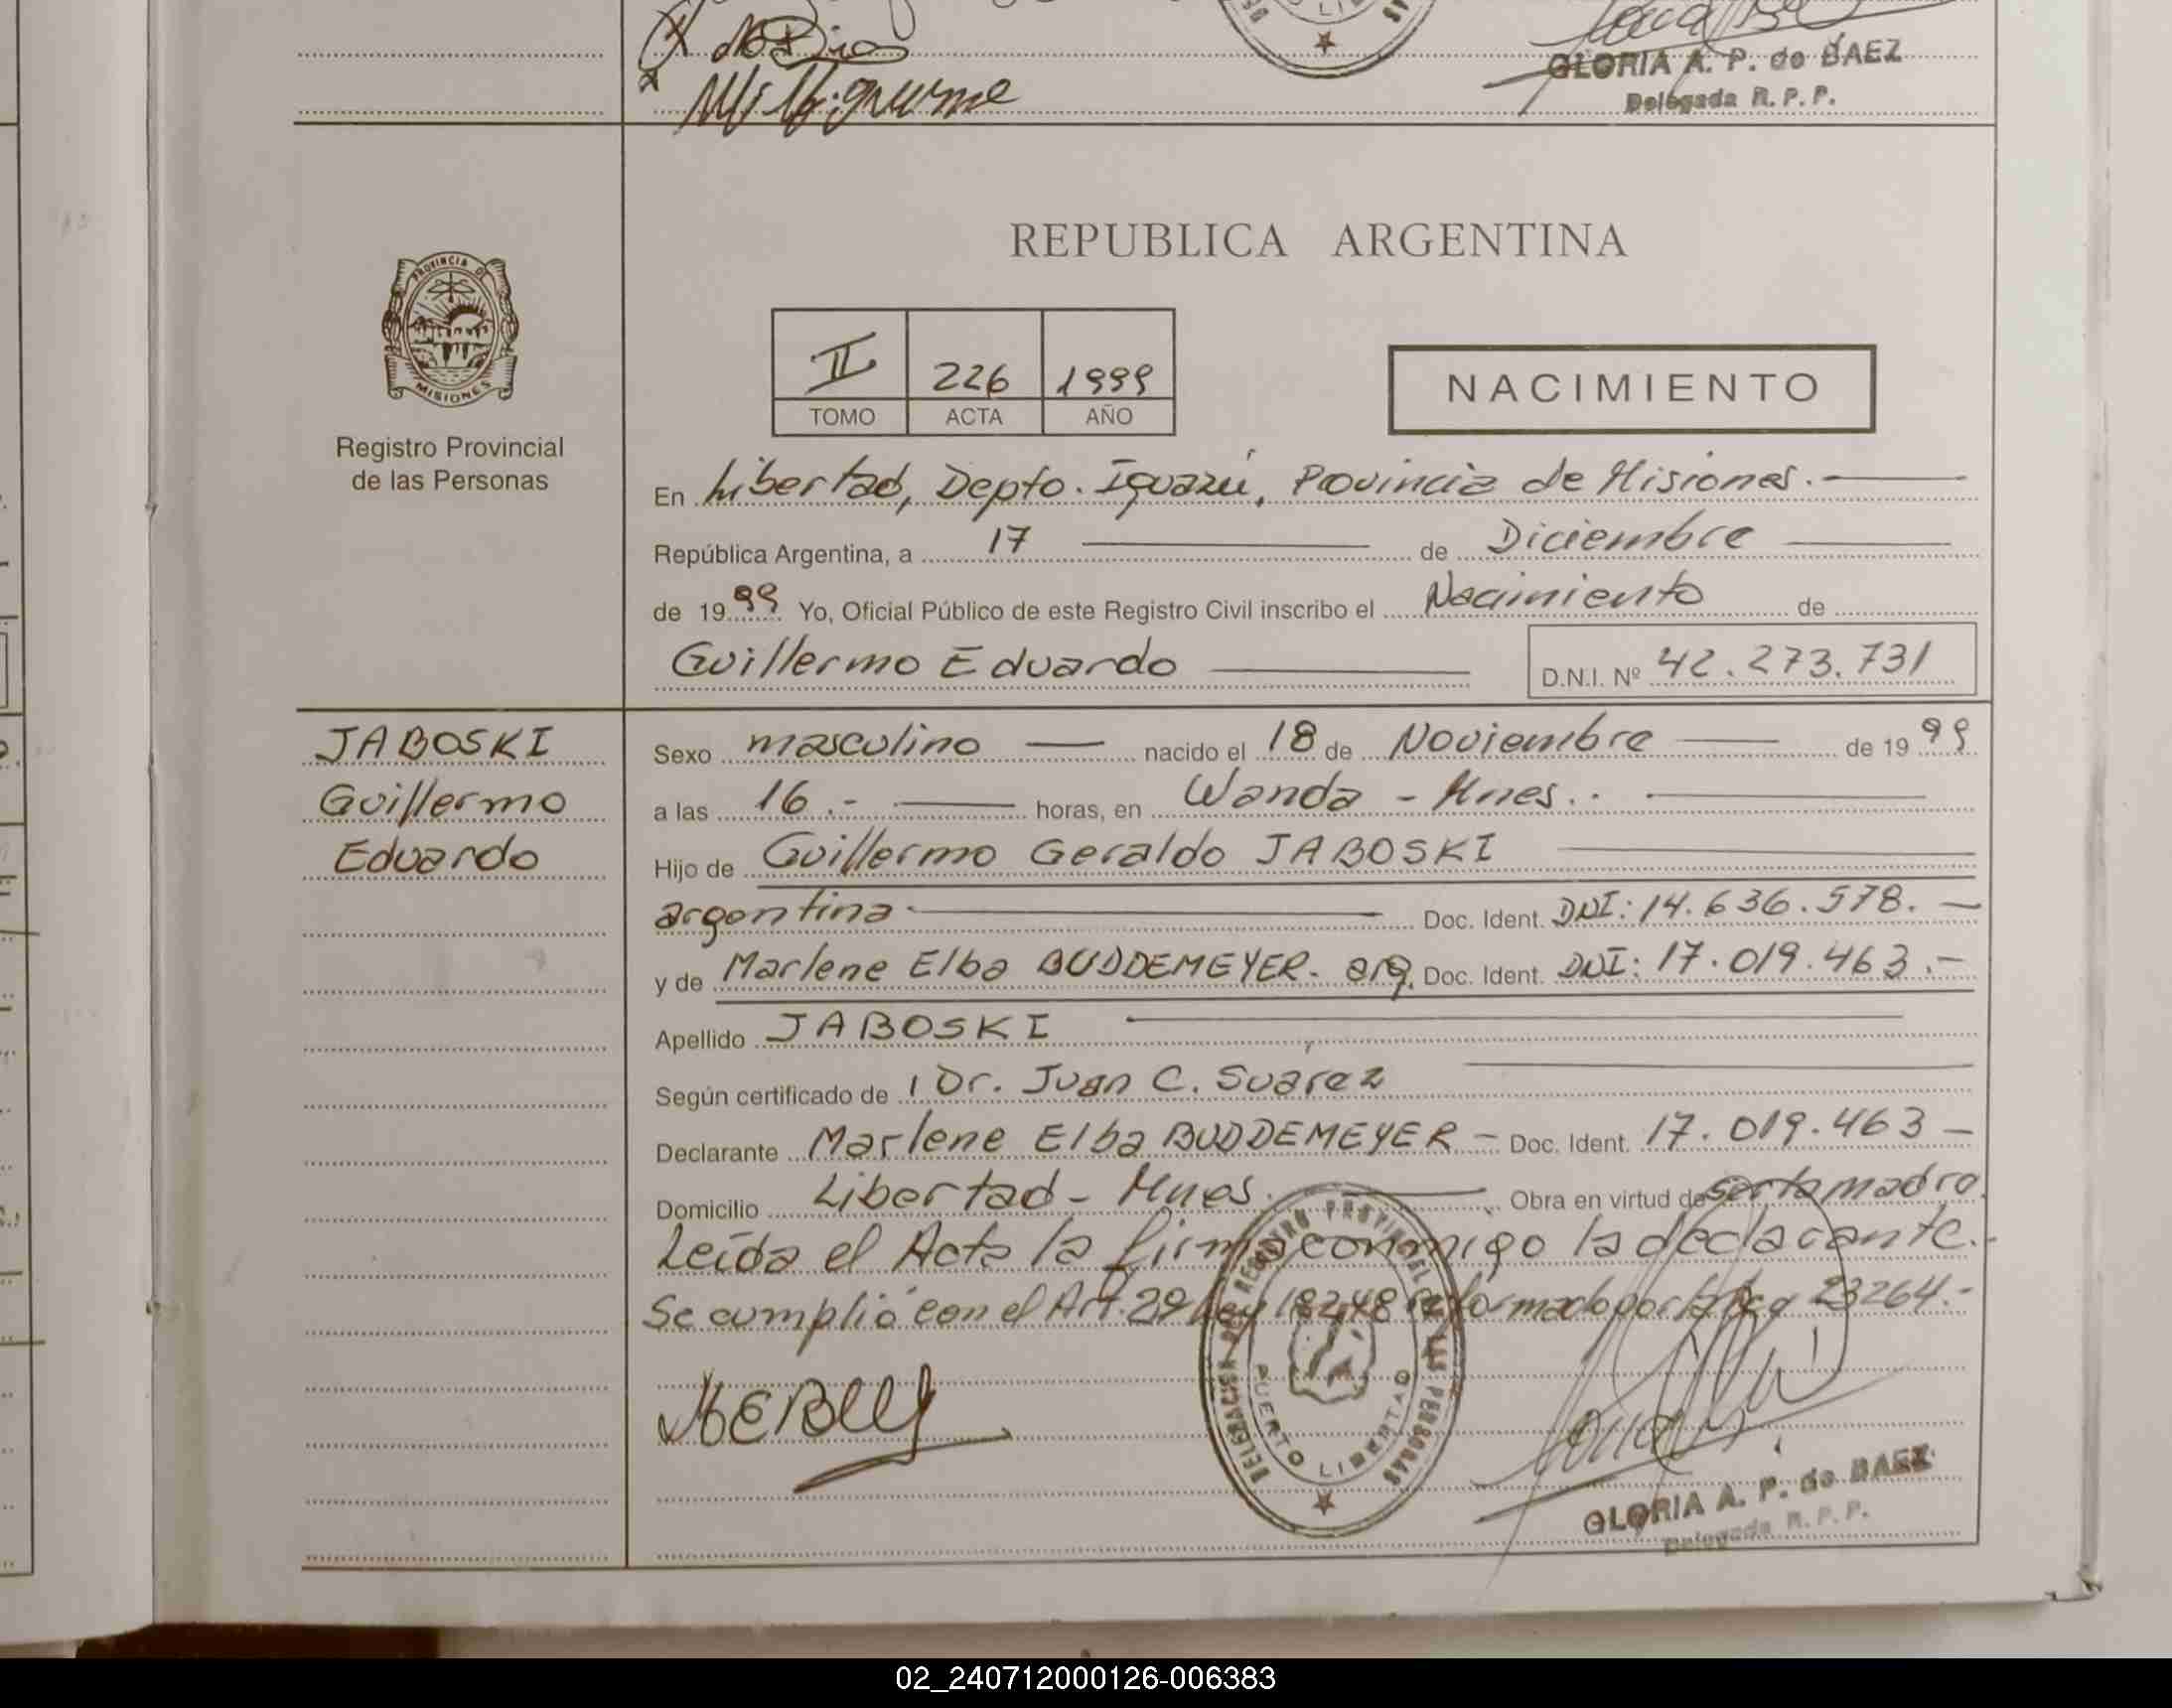 GLORIA A. P. de BAEZ
Delegada R. P. P.
PROVINCIA DE
MISIONES
Registro Provincial
de las Personas
REPUBLICA ARGENTINA
II 226 1999
TOMO ACTA AÑO
NACIMIENTO
En Libertad, Depto. Iguazú, Provincia de Misiones.
República Argentina, a 17 de Diciembre
de 1999 Yo, Oficial Público de este Registro Civil inscribo el Nacimiento de
Guillermo Eduardo D.N.I. Nº 42.273.731
JABOSKI
Guillermo
Eduardo
Sexo masculino nacido el 18 de Noviembre de 1999
a las 16.- horas, en Wanda - Mnes.
Hijo de Guillermo Geraldo JABOSKI
argentina. Doc. Ident. DNI: 14.636.578.-
y de Marlene Elba BUDDEMEYER. arg. Doc. Ident. DNI: 17.019.463.-
Apellido JABOSKI
Según certificado de Dr. Juan C. Suárez
Declarante Marlene Elba BUDDEMEYER - Doc. Ident. 17.019.463 -
Domicilio Libertad - Mnes. Obra en virtud de ser la madre
Leída el Acta la firma conmigo la declarante.-
Se cumplió con el Art. 29 Ley 18248 reformado por la Ley 23264.-
DELEGACION DE REGISTRO PROVINCIAL DE LAS PERSONAS
PUERTO LIBERTAD
GLORIA A. P. de BAEZ
Delegada R. P. P.
02_240712000126-006383